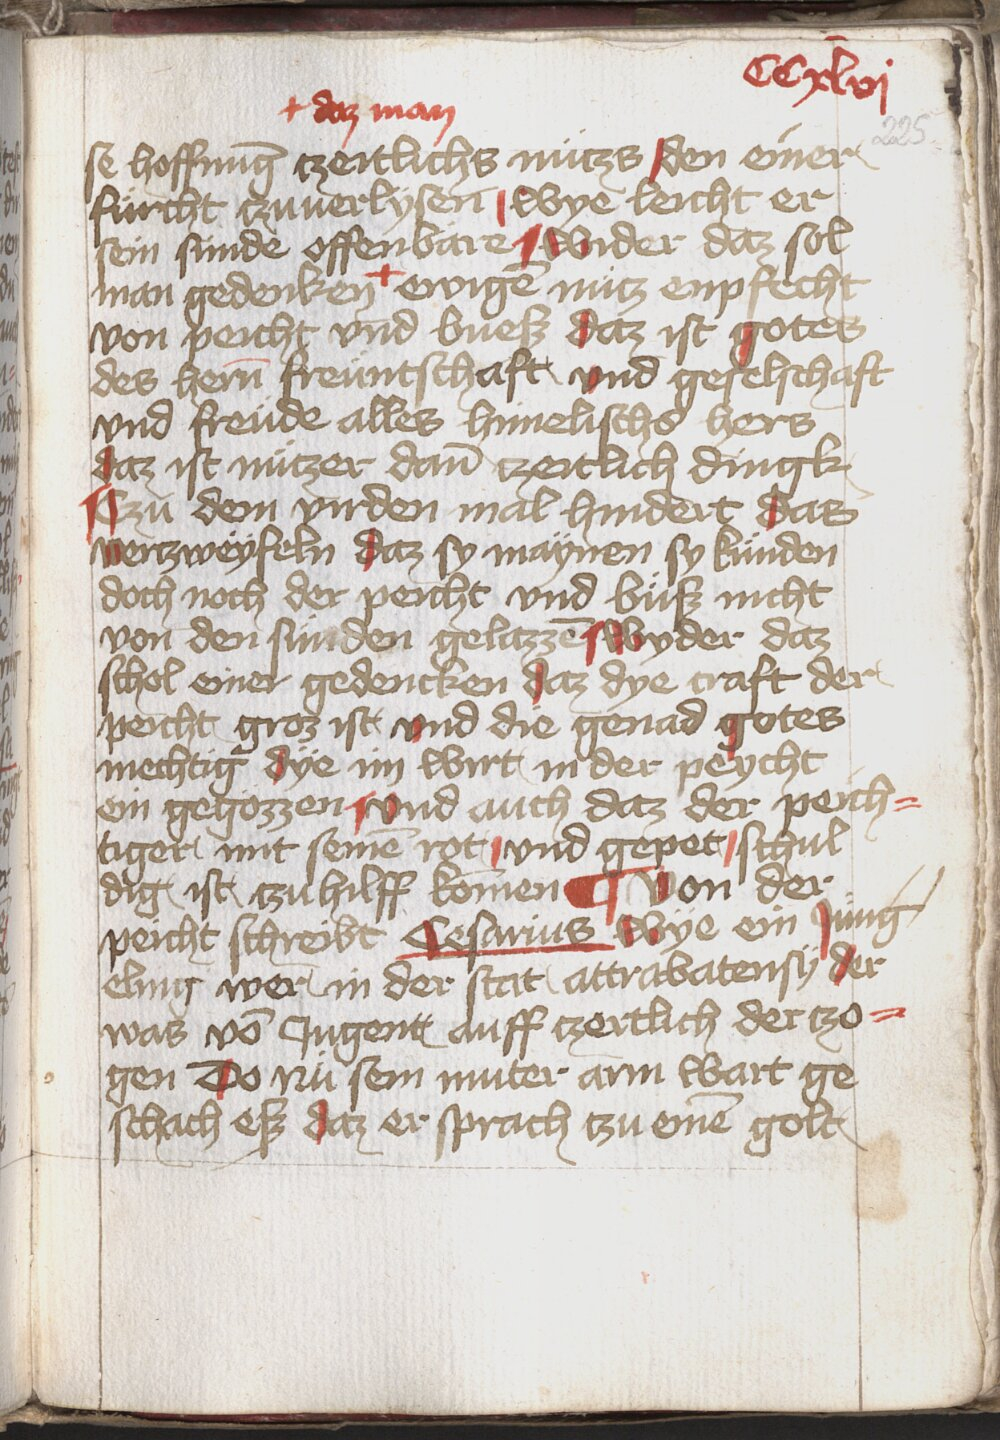 CCxlvj
225
+ daz man
se hoffnung̅ tzeitlichs nützs den einer
fürcht tzuuerlysen̅ wye leicht er
sein sünde offenbare Wider daz sol
man gedenken + ewige̅ nütz enpfecht
von peicht vnd buesz daz ist gotes
des hern̅ freüntschaft vnd geselschaft
vnd freüde alles himelischs hers
daz ist nützer dan̅ tzeitlich dingk
Czu dem virden mal hindert das
vertzweyfeln daz sy maynen sy künden
doch noch der peicht vnd büsz nicht
von den sünden gelazze̅ Wyder daz
schol einer gedencken daz dye craft der
peicht groz ist vnd die genad gotes
mechtig dye im wirt in der peycht
ein gegozzen vnd auch daz der peich=
tiger mit seine̅ rot vnd gepet schul
dig ist tzu hilff ko̅men ¶ Von der
peicht schreibt Cesarius wye ein Jüng
eling wer in der stat attrabatensy der
was vo̅ Jugent auff tzertlich der tzo=
gen Do nü sein muter arm wart ge
schach esz daz er sprach tzu eine̅ golt